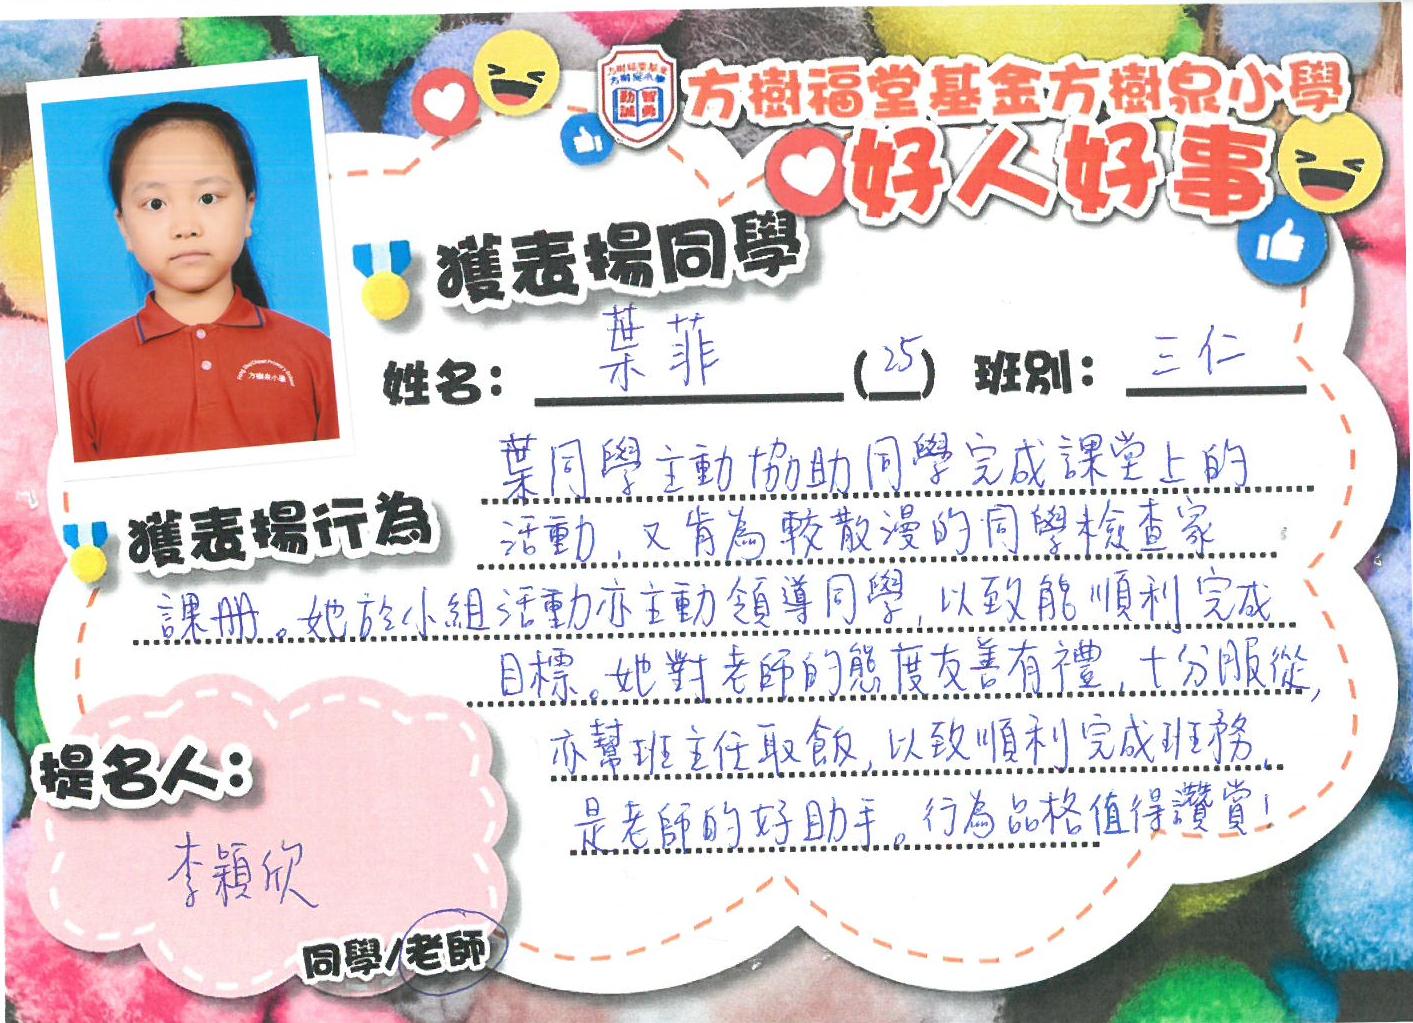 方樹福堂基金方樹泉小學
好人好事
獲表揚同學
姓名： 葉菲 (25) 班別： 三仁
方樹泉小學
獲表揚行為
葉同學主動協助同學完成課堂上的
活動，又肯為較散漫的同學檢查家
課冊。她於小組活動亦主動領導同學，以致能順利完成
目標。她對老師的態度友善有禮，十分服從，
亦幫班主任取飯，以致順利完成班務，
是老師的好助手。行為品格值得讚賞！
提名人：
李穎欣
同學/老師